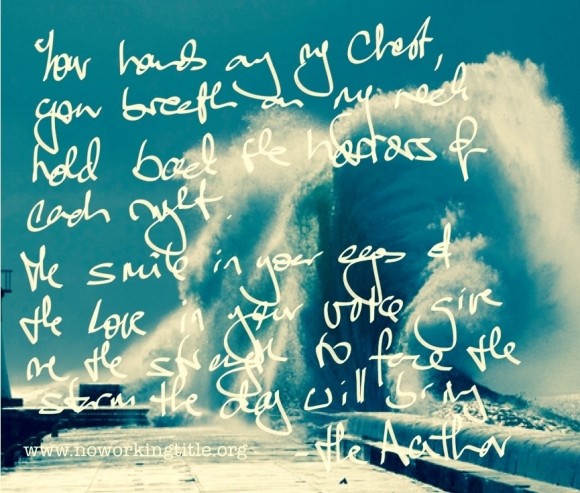 Your hands on my chest,
your breath on my neck
hold back the horrors of
each night.
the smile in your eyes &
the love in your voice give
me the strength to face the
storm the day will bring
www.noworkingtitle.org
- the Author